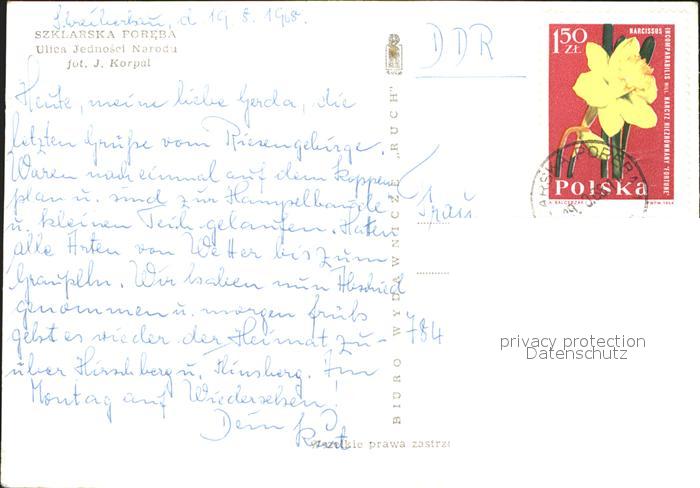 Schreiberhau, d 19. 8. 1968.
SZKLARSKA PORĘBA
Ulica Jedności Narodu
fot. J. Korpal
Heute, meine liebe Gerda, die
letzten Grüße vom Riesengebirge.
Waren noch einmal auf dem Koppen
plan u. sind zur Hampelbaude
u. kleinen Teich gelaufen. Hatten
alle Arten von Wetter bis zum
Graupeln. Wir haben nun Abschied
genommen u. morgen früh
geht es wieder der Heimat zu-
über Hirschberg u. Flinsberg. Im
Montag auf Wiedersehen!
Dein Kurt
BIURO WYDAWNICZE „RUCH"
Wszelkie prawa zastrz
DDR
Frau
784
1.50
ZŁ
NARCISSUS
INCOMPARABILIS MILL. NARCYZ NIEZRÓWNANY 'FORTUNE'
POLSKA
privacy protection
Datenschutz